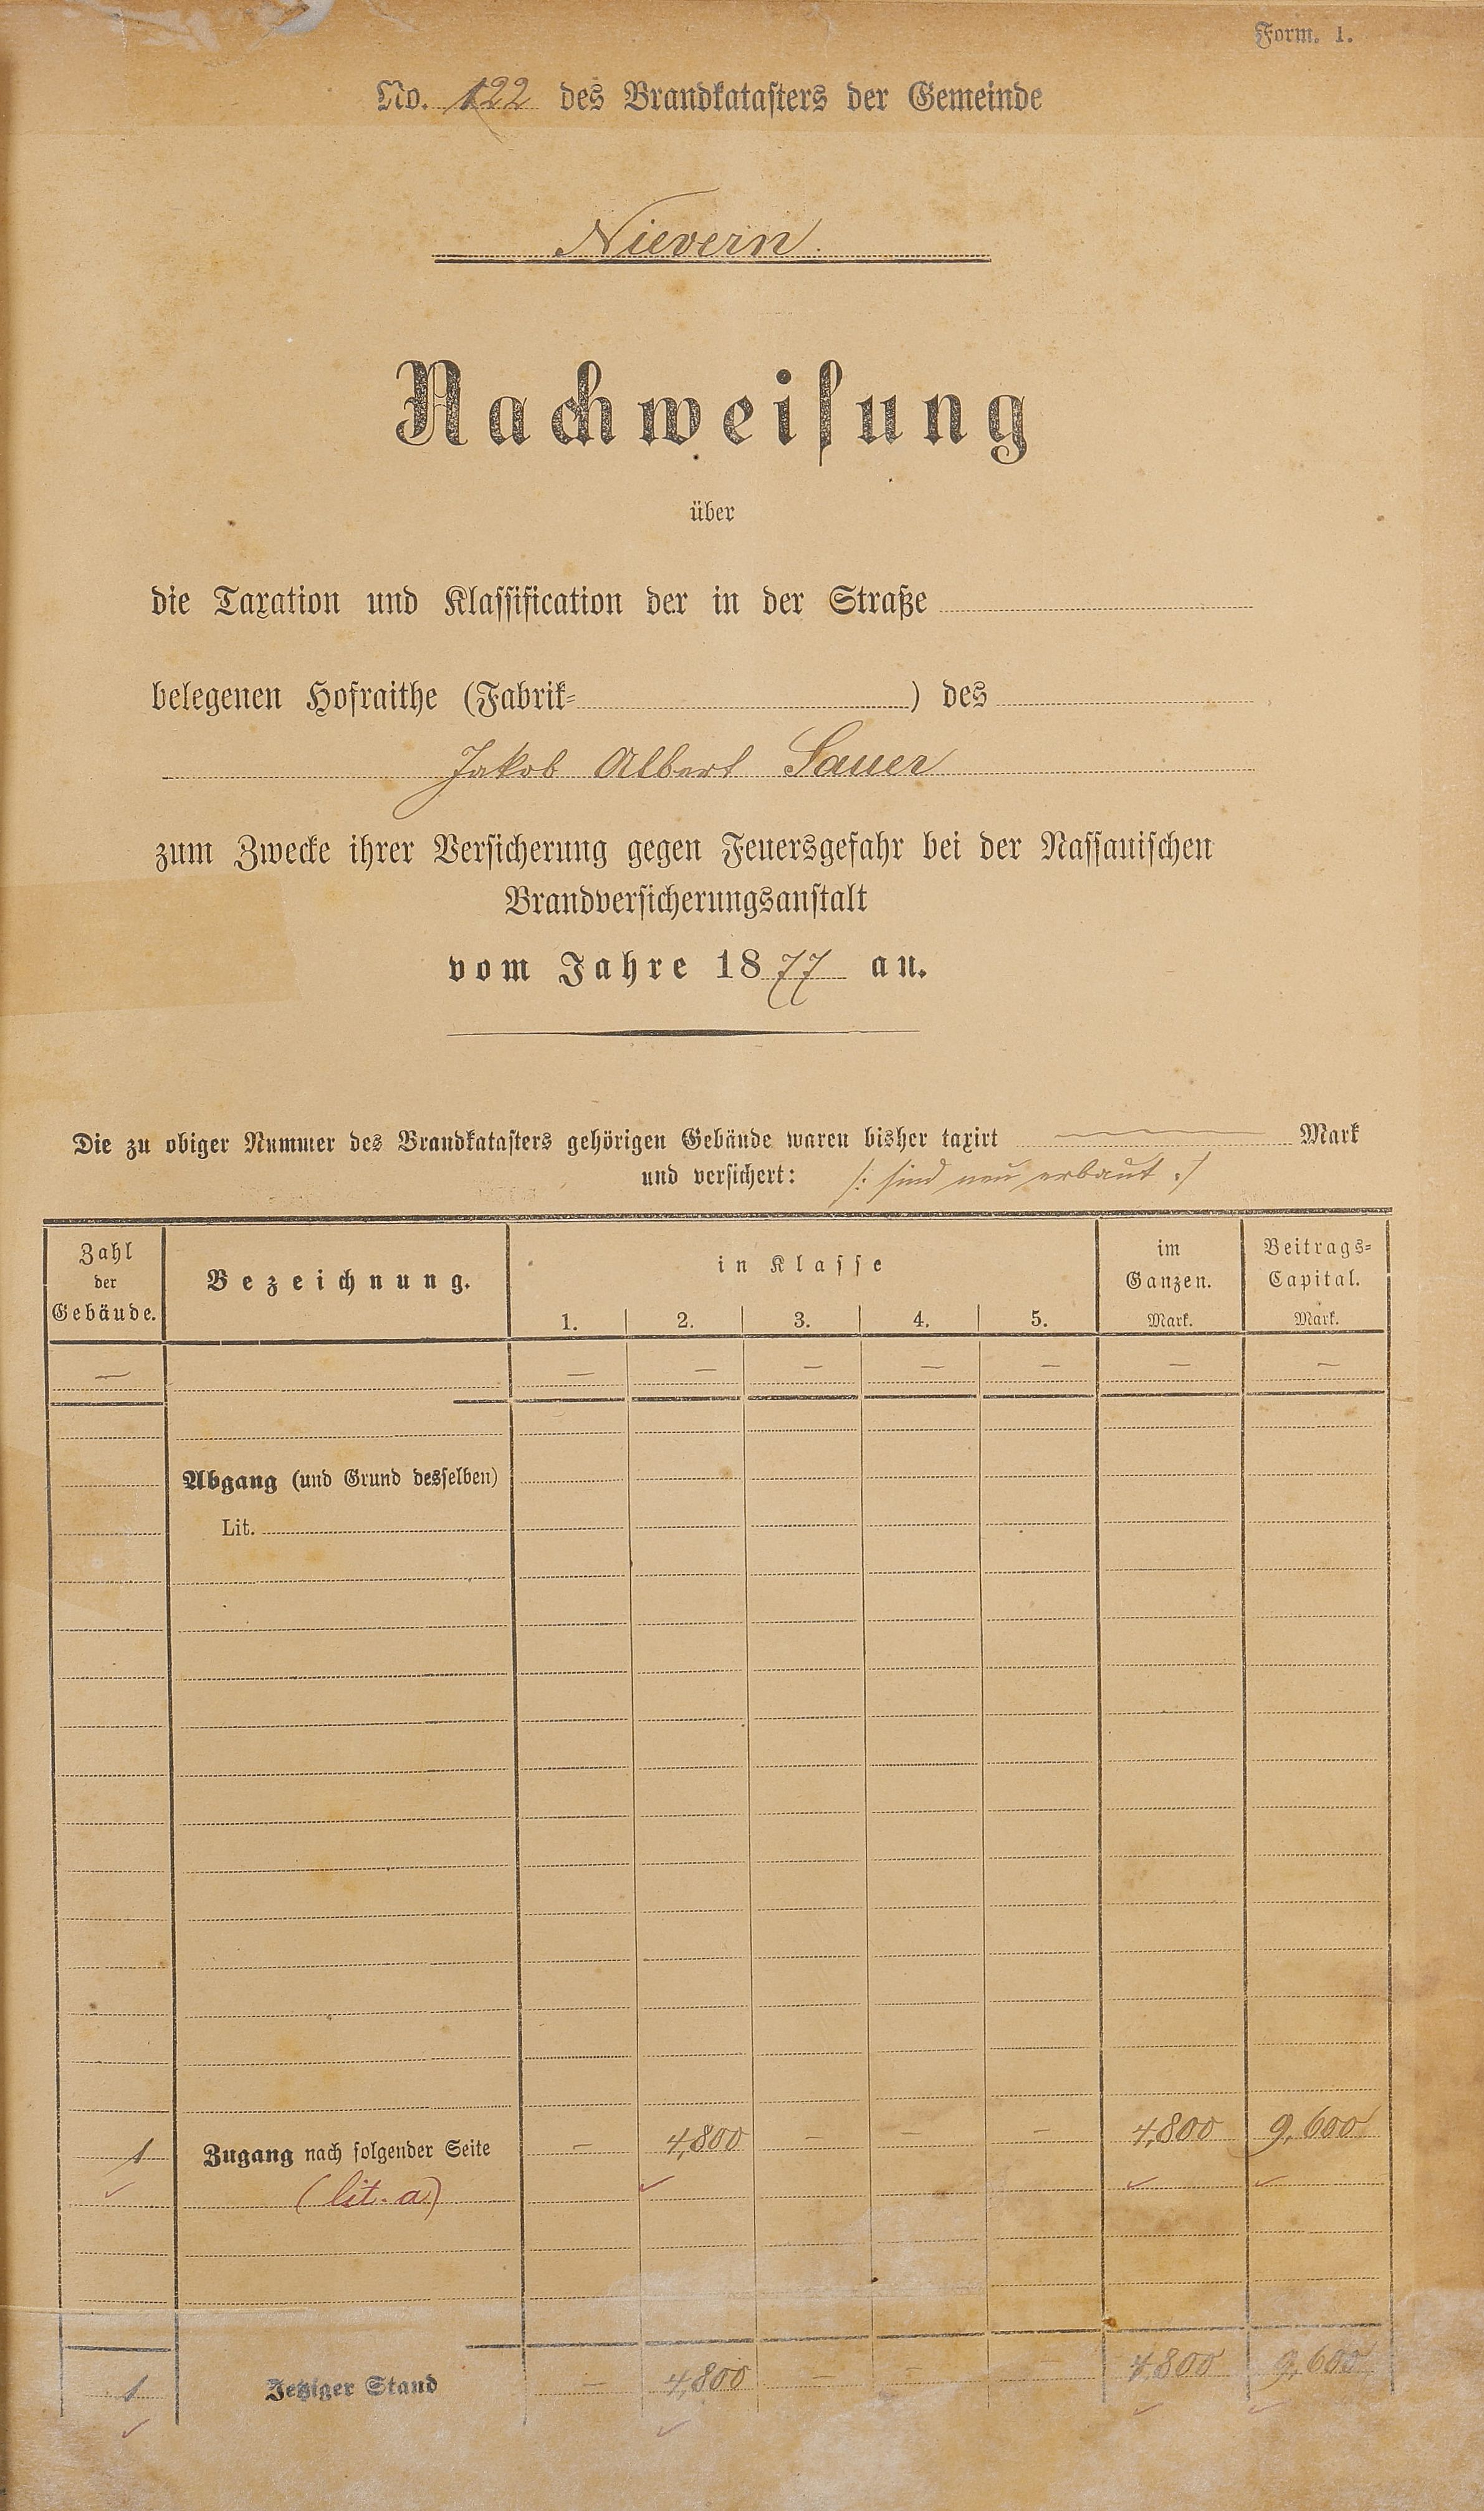 Form. 1.
No. 122 des Brandkatasters der Gemeinde
Nievern.
Nachweisung
über
die Taxation und Klassification der in der Straße
belegenen Hofraithe (Fabrik- ) des
Jakob Albert Sauer
zum Zwecke ihrer Versicherung gegen Feuersgefahr bei der Nassauischen
Brandversicherungsanstalt
vom Jahre 1877 an.
Die zu obiger Nummer des Brandkatasters gehörigen Gebäude waren bisher taxirt — Mark
und versichert: /: sind neu erbaut :/
Zahl der Gebäude. Bezeichnung. in Klasse im Ganzen. Beitrags-Capital.
1. 2. 3. 4. 5. Mark. Mark.
— — — — — — — —
Abgang (und Grund desselben)
Lit.
1 Zugang nach folgender Seite — 4,800 — — — 4,800 9,600
(lit. a)
1 Jetziger Stand — 4,800 — — — 4,800 9,600